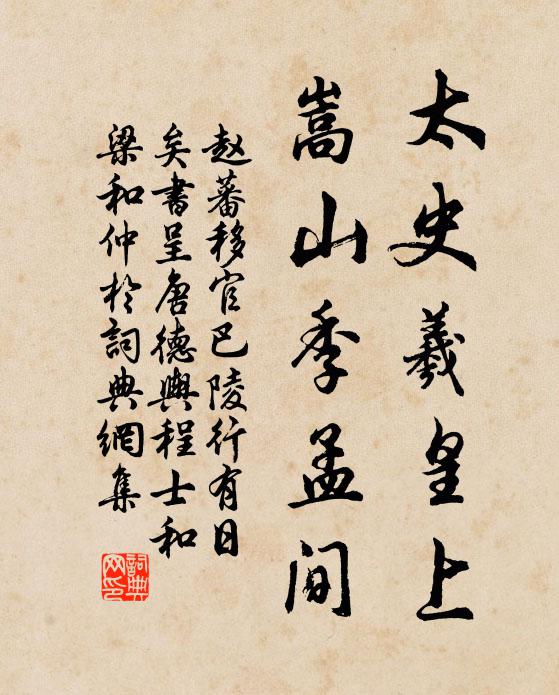 太史羲皇上
嵩山季孟间
赵蕃移官巴陵行有日
矣書呈唐德輿程士和
梁和仲於詞典網集
詞典网印